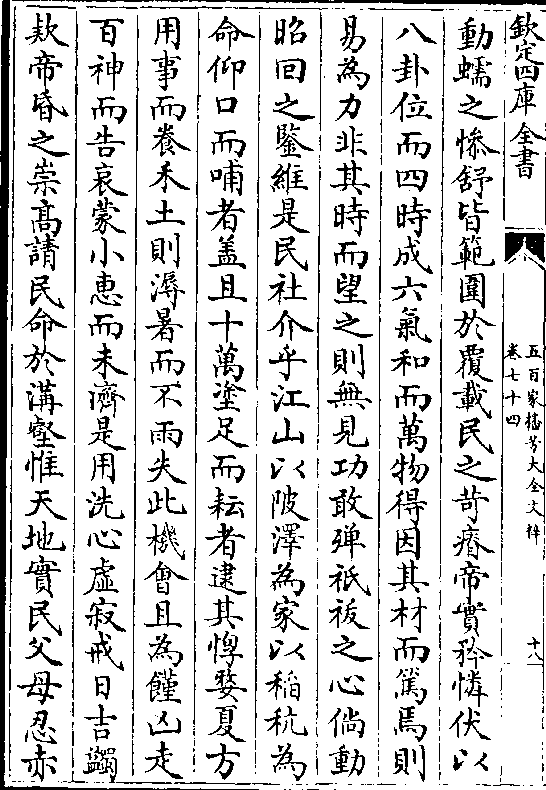 欽定四庫全書
五百家播芳大全文粹
卷七十四
十八
動蠕之慘舒皆範圍於覆載民之苛癢帝實矜憐伏以
八卦位而四時成六氣和而萬物得因其材而篤焉則
易為力非其時而望之則無見功敢殫祇祓之心倘動
昭回之鑒維是民社介乎江山以陂澤為家以稲秔為
命仰口而哺者盖且十萬塗足而耘者逮其惸嫠夏方
用事而養禾土則溽暑而不雨失此機會且為饉凶走
百神而告哀蒙小惠而未濟是用洗心虛寂戒日吉蠲
欵帝㫳之崇髙請民命於溝壑惟天地實民父母忍赤